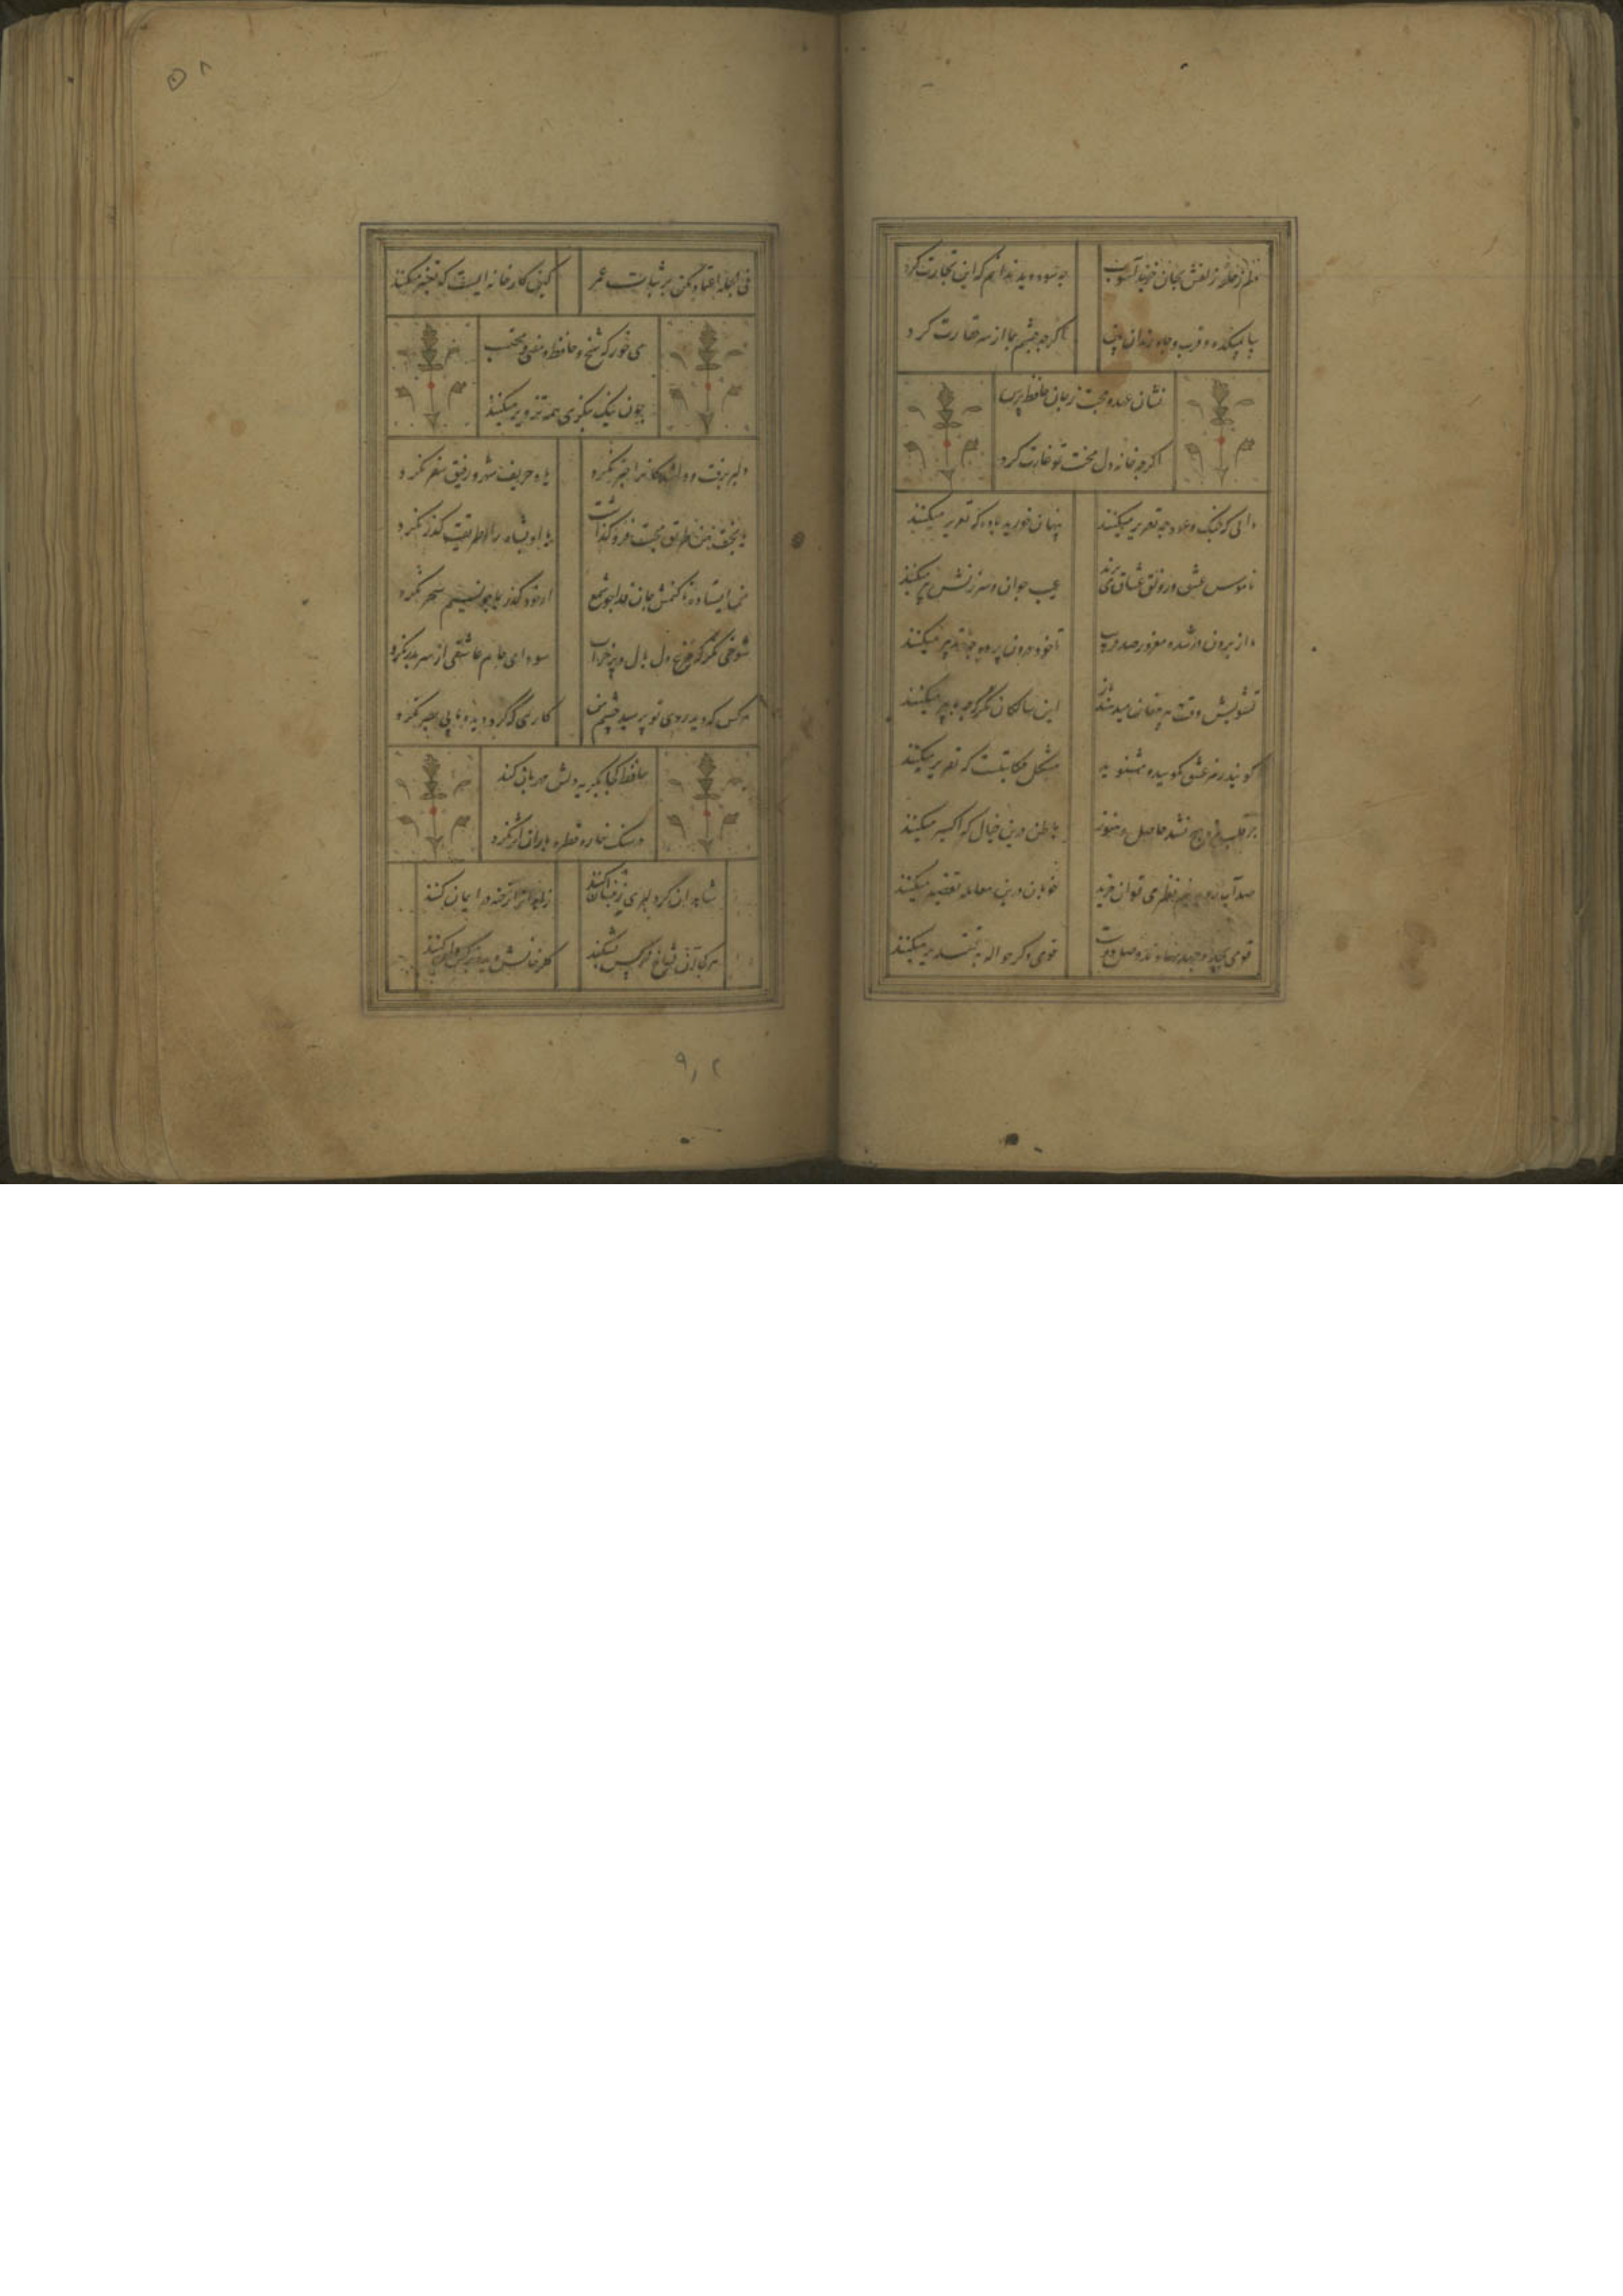 دلم ز حلقه زلفش بجان خرید آشوب
چه سود دید ندانم که این تجارت کرد
بیا بمیکده و قرب و جاه رندان بین
اگرچه چشم بما از سر حقارت کرد
نشان عهد و محبت ز جان حافظ پرس
اگرچه خانه دل محنت تو غارت کرد
دانی که چنگ و عود چه تقریر میکنند
پنهان خورید باده که تعزیر میکنند
ناموس عشق و رونق عشاق می برند
عیب جوان و سرزنش پیر میکنند
ما از برون در شده مغرور صد فریب
تا خود درون پرده چه تدبیر میکنند
تشویش وقت پیر مغان میدهند باز
این سالکان نگر که چه با پیر میکنند
گویند رمز عشق مگویید و مشنوید
مشکل حکایتیست که تقریر میکنند
جز قلب هیچ نشد حاصل و هنوز
باطل درین خیال که اکسیر میکنند
صد آب رو به نیم نظر می توان خرید
خوبان درین معامله تقصیر میکنند
قومی بجد و جهد نهادند وصل دوست
قومی دگر حواله به تقدیر میکنند
فی الجمله اعتماد مکن بر ثبات عمر
کین کارخانه ایست که تغییر میکنند
می خور که شیخ و حافظ و مفتی و محتسب
چون نیک بنگری همه تزویر میکنند
دلبر برفت و دلشدگانرا خبر نکرد
یاد حریف شهر و رفیق سفر نکرد
یا بخت من طریق محبت فرو گذاشت
یا او بشاه راه طریقت گذر نکرد
من ایستاده تا کنمش جان فدا چو شمع
او خود گذر بما چو نسیم سحر نکرد
شوخی نگر که مرغ دل بال و پر خراب
سودای دام عاشقی از سر بدر نکرد
هر کس که دید روی تو بوسید چشم من
کاری که کرد دیده ما بی بصر نکرد
حافظ کجا بگریه دلش مهربان کند
در سنگ خاره قطره باران اثر نکرد
شاهدان گر دلبری زینسان کنند
زاهدانرا رخنه در ایمان کنند
هر کجا آن شاخ نرگس بشکفد
گلرخانش دیده نرگس دان کنند